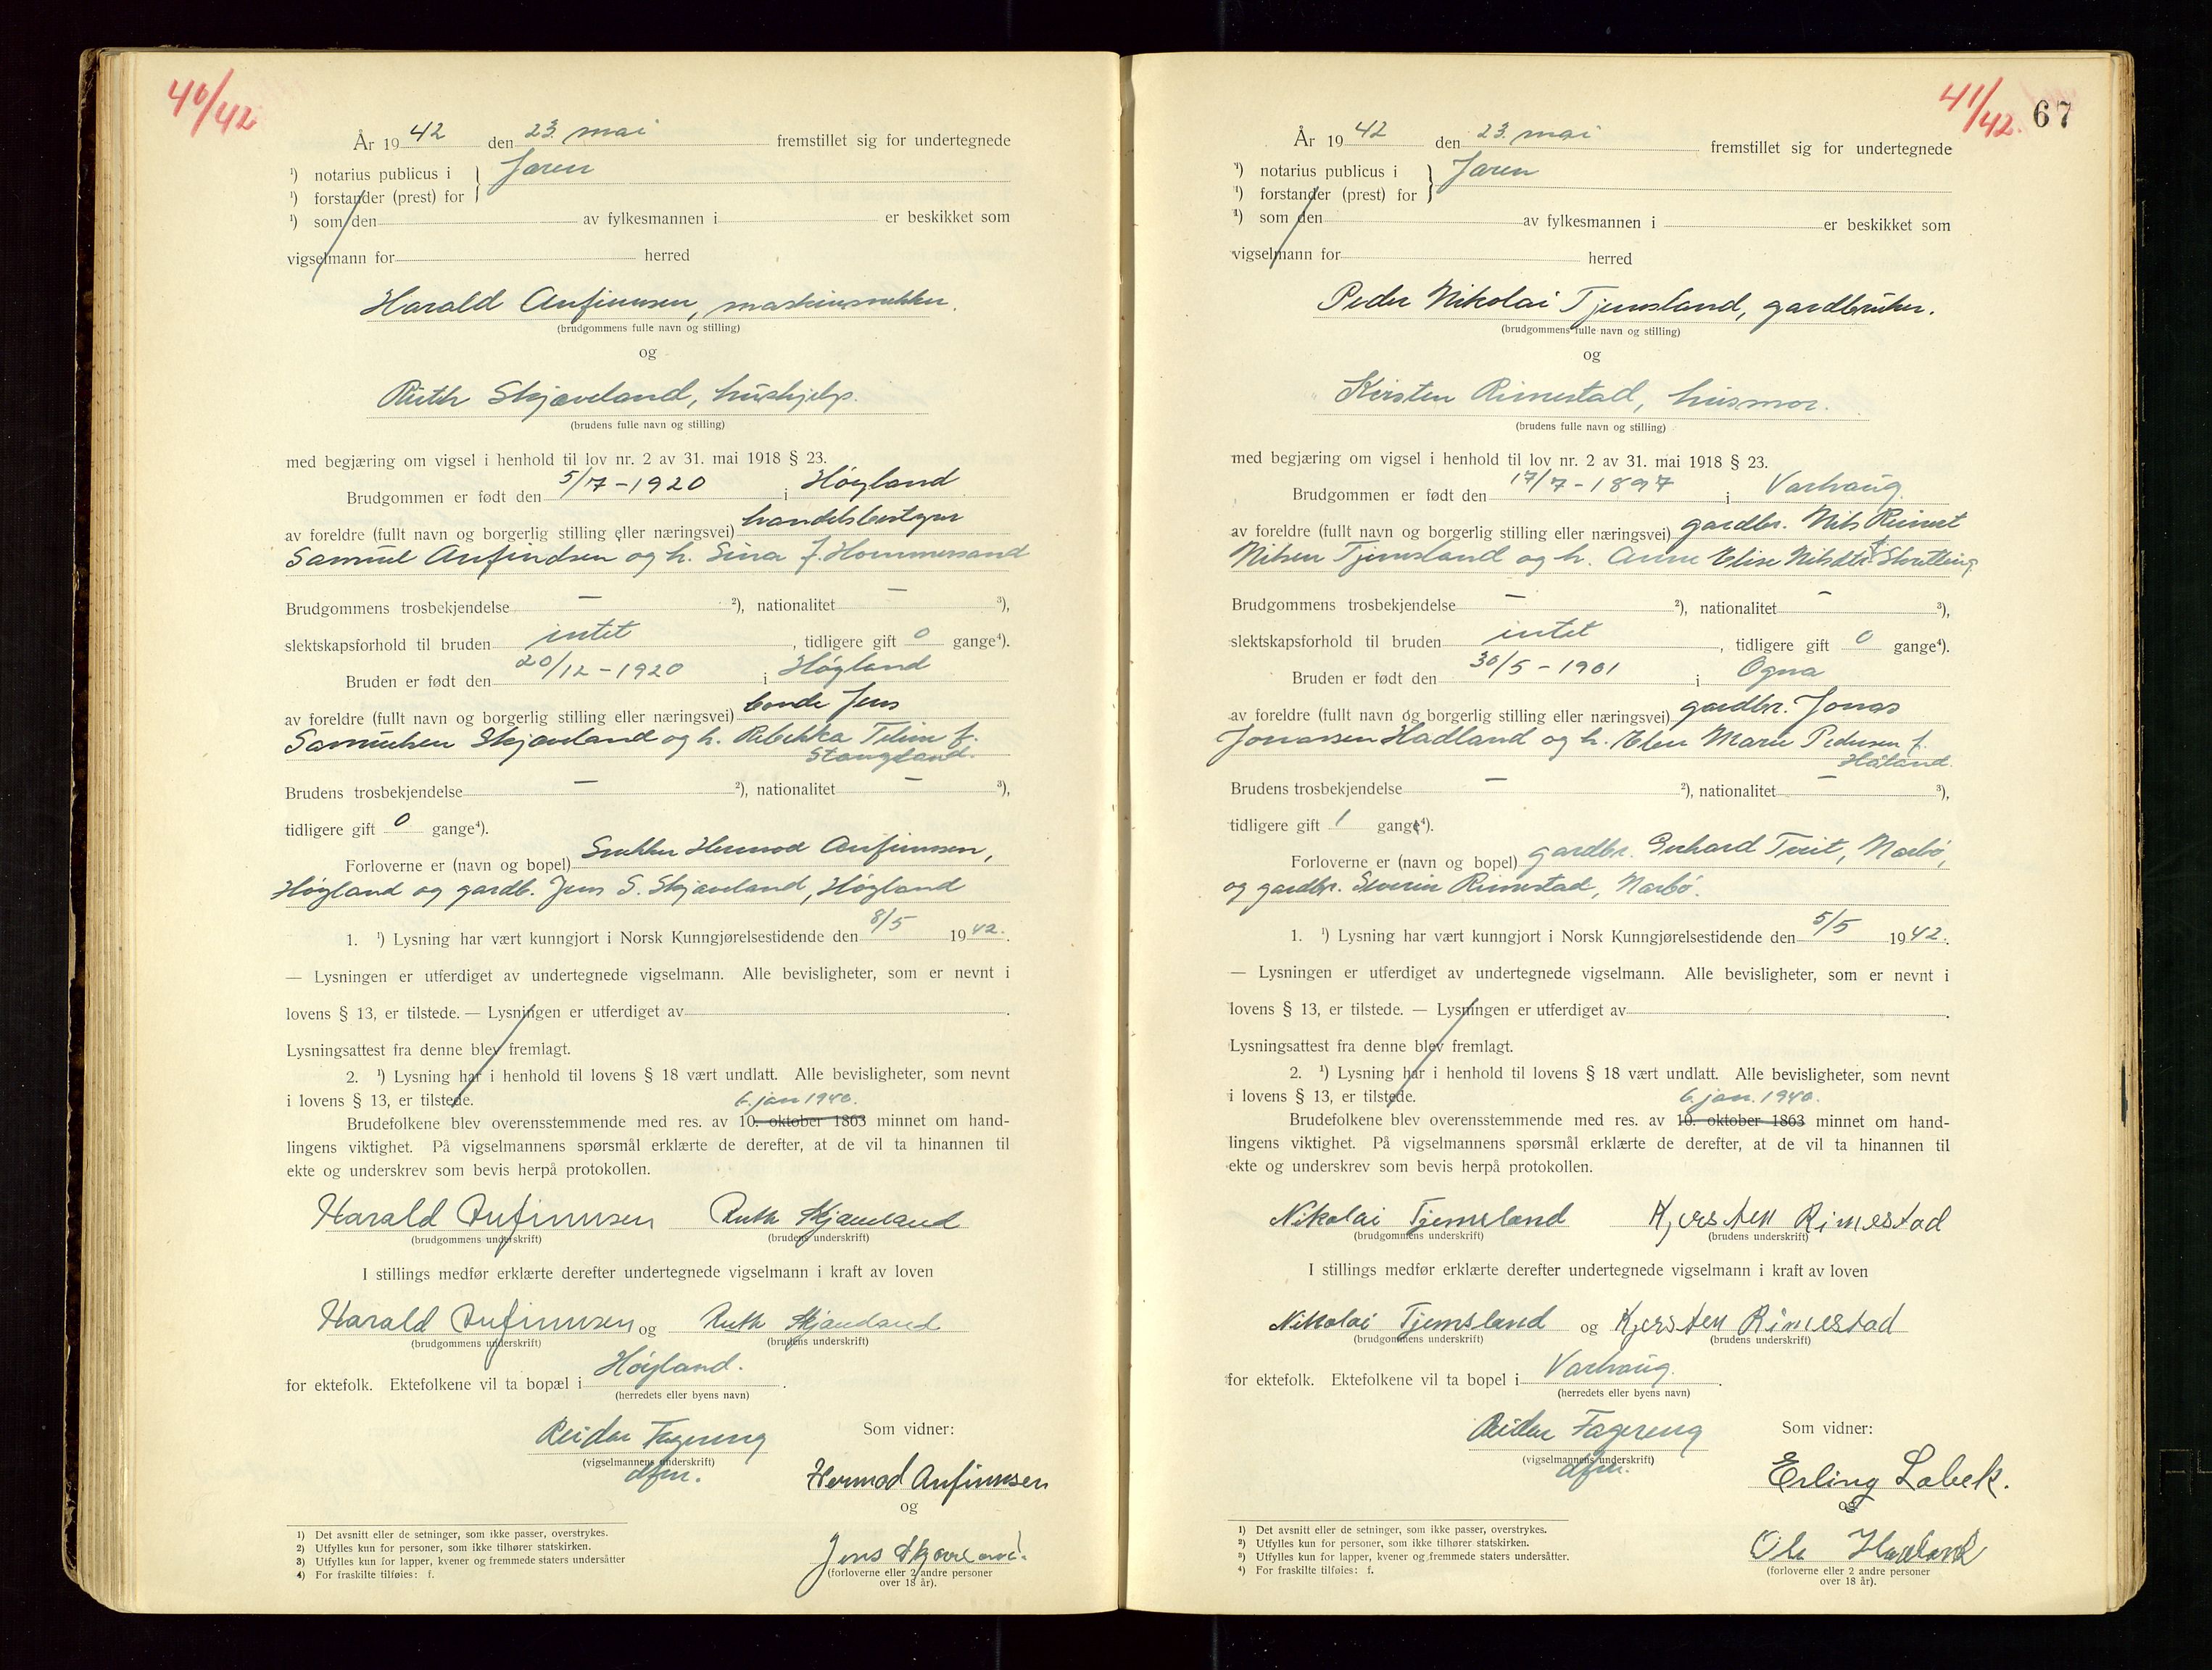 40/42
År 1942 den 23. mai fremstillet sig for undertegnede
¹) notarius publicus i } Jæren
¹) forstander (prest) for
¹) som den av fylkesmannen i er beskikket som
vigselmann for herred
Harald Anfinnsen, maskinsnekker.
(brudgommens fulle navn og stilling)
og
Ruth Skjæveland, hushjelp.
(brudens fulle navn og stilling)
med begjæring om vigsel i henhold til lov nr. 2 av 31. mai 1918 § 23.
Brudgommen er født den 5/7 - 1920 i Høyland
av foreldre (fullt navn og borgerlig stilling eller næringsvei) handelsbestyrer
Samuel Anfindsen og h. Sina f. Hommersand
Brudgommens trosbekjendelse — ²), nationalitet — ³),
slektskapsforhold til bruden intet, tidligere gift 0 gange⁴).
Bruden er født den 20/12 - 1920 i Høyland
av foreldre (fullt navn og borgerlig stilling eller næringsvei) bonde Jens
Samuelsen Skjæveland og h. Rebekka Teline f.
Stangeland.
Brudens trosbekjendelse — ²), nationalitet — ³),
tidligere gift 0 gange⁴).
Forloverne er (navn og bopel) Snekker Hermod Anfinnsen,
Høyland og gardb. Jens S. Skjæveland, Høyland
1. ¹) Lysning har vært kunngjort i Norsk Kunngjørelsestidende den 8/5 1942.
— Lysningen er utferdiget av undertegnede vigselmann. Alle bevisligheter, som er nevnt i
lovens § 13, er tilstede. — Lysningen er utferdiget av .
Lysningsattest fra denne blev fremlagt.
2. ¹) Lysning har i henhold til lovens § 18 vært undlatt. Alle bevisligheter, som nevnt
i lovens § 13, er tilstede. 6. jan 1940.
Brudefolkene blev overensstemmende med res. av 10. oktober 1863 minnet om hand-
lingens viktighet. På vigselmannens spørsmål erklærte de derefter, at de vil ta hinannen til
ekte og underskrev som bevis herpå protokollen.
Harald Anfinnsen Ruth Skjæveland
(brudgommens underskrift) (brudens underskrift)
I stillings medfør erklærte derefter undertegnede vigselmann i kraft av loven
Harald Anfinnsen og Ruth Skjæveland
(brudgommens underskrift) (brudens underskrift)
for ektefolk. Ektefolkene vil ta bopæl i Høyland.
(herredets eller byens navn)
Reidar Fagereng Som vidner:
(vigselmannens underskrift)
dfm. Hermod Anfinnsen
og
Jens Skjæveland.
(forloverne eller 2 andre personer
over 18 år).
1) Det avsnitt eller de setninger, som ikke passer, overstrykes.
2) Utfylles kun for personer, som ikke tilhører statskirken.
3) Utfylles kun for lapper, kvener og fremmede staters undersåtter
4) For fraskilte tilføies: f.
41/42. 67
År 1942 den 23. mai fremstillet sig for undertegnede
¹) notarius publicus i } Jæren
¹) forstander (prest) for
¹) som den av fylkesmannen i er beskikket som
vigselmann for herred
Peder Nikolai Tjemsland, gardbruker.
(brudgommens fulle navn og stilling)
og
Kirsten Rimestad, husmor.
(brudens fulle navn og stilling)
med begjæring om vigsel i henhold til lov nr. 2 av 31. mai 1918 § 23.
Brudgommen er født den 17/7 - 1897 i Varhaug
av foreldre (fullt navn og borgerlig stilling eller næringsvei) gardbr. Nils Reinert
Nilsen Tjemsland og h. Anne Elise Nilsdtr. f. Skretting
Brudgommens trosbekjendelse — ²), nationalitet — ³),
slektskapsforhold til bruden intet, tidligere gift 0 gange⁴).
Bruden er født den 30/5 - 1901 i Ogna
av foreldre (fullt navn og borgerlig stilling eller næringsvei) gardbr. Jonas
Jonassen Hadland og h. Elen Marie Pedersen f.
Håland.
Brudens trosbekjendelse — ²), nationalitet — ³),
tidligere gift 1 gange⁴).
Forloverne er (navn og bopel) gardbr. Gerhard Tveit, Nærbø,
og gardbr. Severin Rimestad, Nærbø.
1. ¹) Lysning har vært kunngjort i Norsk Kunngjørelsestidende den 5/5 1942.
— Lysningen er utferdiget av undertegnede vigselmann. Alle bevisligheter, som er nevnt i
lovens § 13, er tilstede. — Lysningen er utferdiget av .
Lysningsattest fra denne blev fremlagt.
2. ¹) Lysning har i henhold til lovens § 18 vært undlatt. Alle bevisligheter, som nevnt
i lovens § 13, er tilstede. 6. jan. 1940.
Brudefolkene blev overensstemmende med res. av 10. oktober 1863 minnet om hand-
lingens viktighet. På vigselmannens spørsmål erklærte de derefter, at de vil ta hinannen til
ekte og underskrev som bevis herpå protokollen.
Nikolai Tjemsland Kjersten Rimestad
(brudgommens underskrift) (brudens underskrift)
I stillings medfør erklærte derefter undertegnede vigselmann i kraft av loven
Nikolai Tjemsland og Kjersten Rimestad
(brudgommens underskrift) (brudens underskrift)
for ektefolk. Ektefolkene vil ta bopel i Varhaug.
(herredets eller byens navn)
Reidar Fagereng Som vidner:
(vigselmannens underskrift)
dfm. Erling Lobek.
og
Ole Haaland
(forloverne eller 2 andre personer
over 18 år).
1) Det avsnitt eller de setninger, som ikke passer, overstrykes.
2) Utfylles kun for personer, som ikke tilhører statskirken.
3) Utfylles kun for lapper, kvener og fremmede staters undersåtter.
4) For fraskilte tilføies: f.